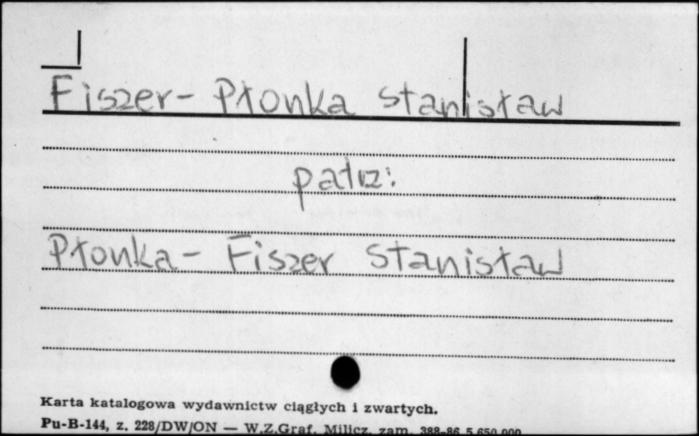 Fiszer-Płonka Stanisław
patrz:
Płonka-Fiszer Stanisław
Karta katalogowa wydawnictw ciągłych i zwartych.
Pu-B-144, z. 228/DW/ON — W.Z.Graf. Milicz, zam. 388-86 5.650.000